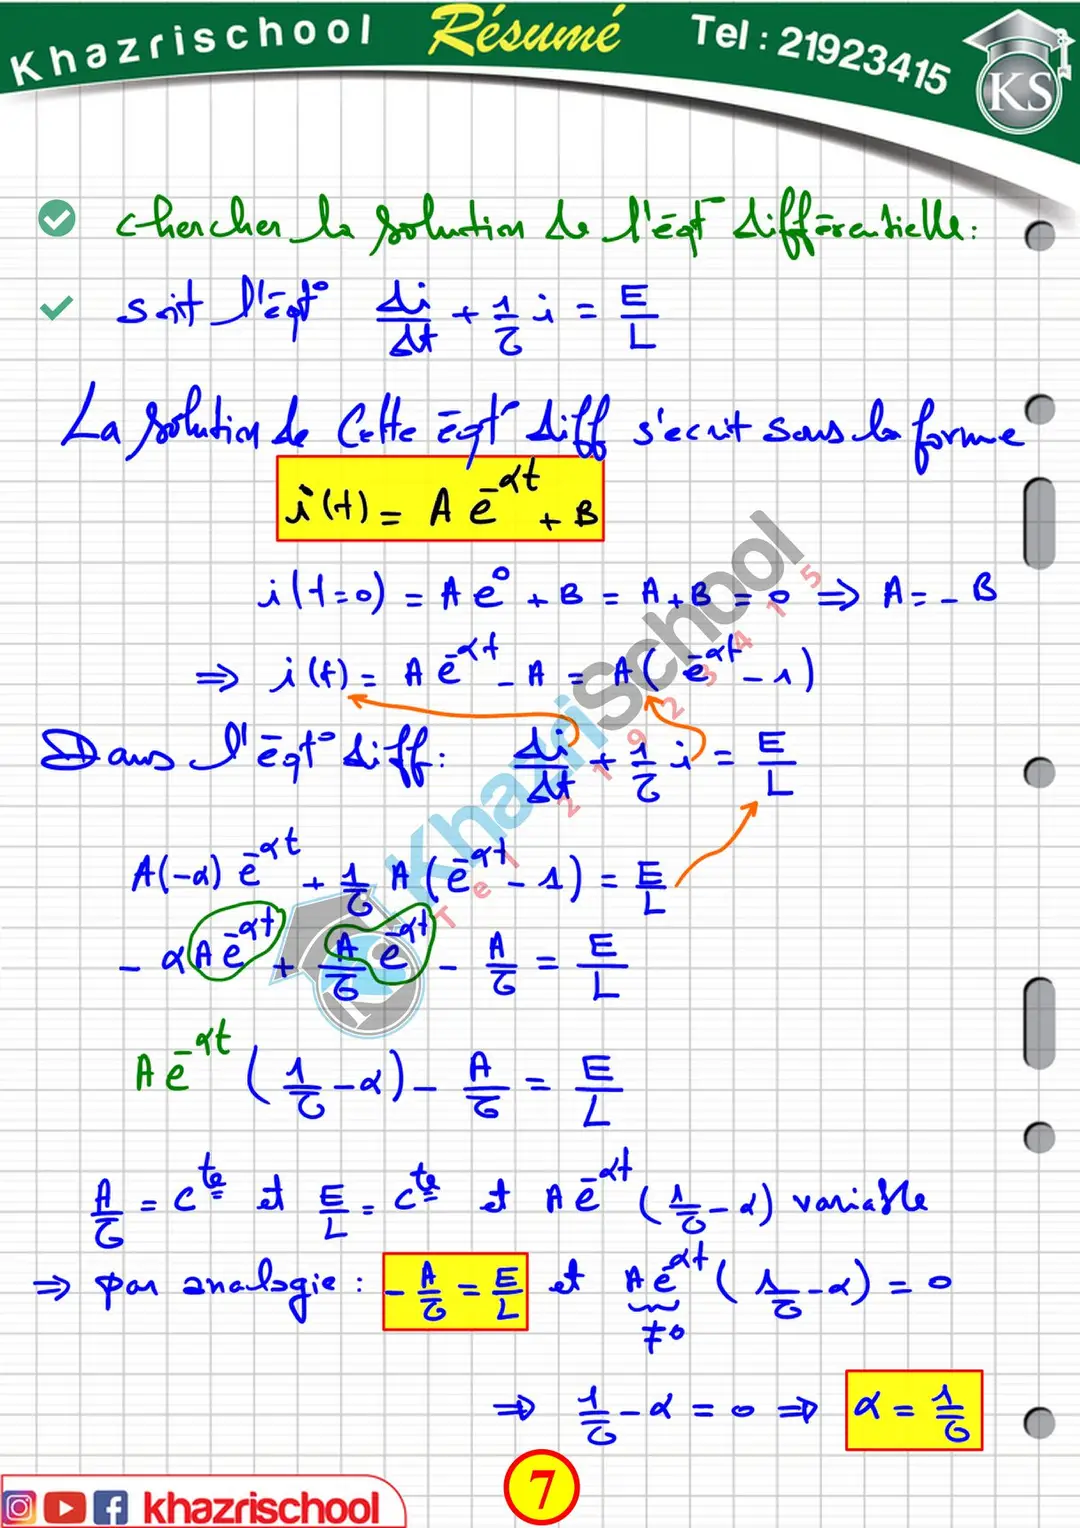 Khazrischool Résumé Tel : 21923415
KS
chercher la solution de l'éqt° différentielle :
soit l'éqt° di/dt + 1/τ i = E/L
La solution de cette éqt° diff s'écrit sous la forme
i(t) = A e^-αt + B
i(t=0) = A e^0 + B = A + B = 0 ⇒ A = - B
⇒ i(t) = A e^-αt - A = A( e^-αt - 1)
Dans l'éqt° diff : di/dt + 1/τ i = E/L
A(-α) e^-αt + 1/τ A (e^-αt - 1) = E/L
- α A e^-αt + A/τ e^-αt - A/τ = E/L
A e^-αt ( 1/τ - α) - A/τ = E/L
A/τ = c^te et E/L = c^te et A e^-αt ( 1/τ - α) variable
⇒ par analogie : - A/τ = E/L et A e^-αt ( 1/τ - α) = 0
≠ 0
⇒ 1/τ - α = 0 ⇒ α = 1/τ
KhazriSchool
Tel 21923415
7
khazrischool